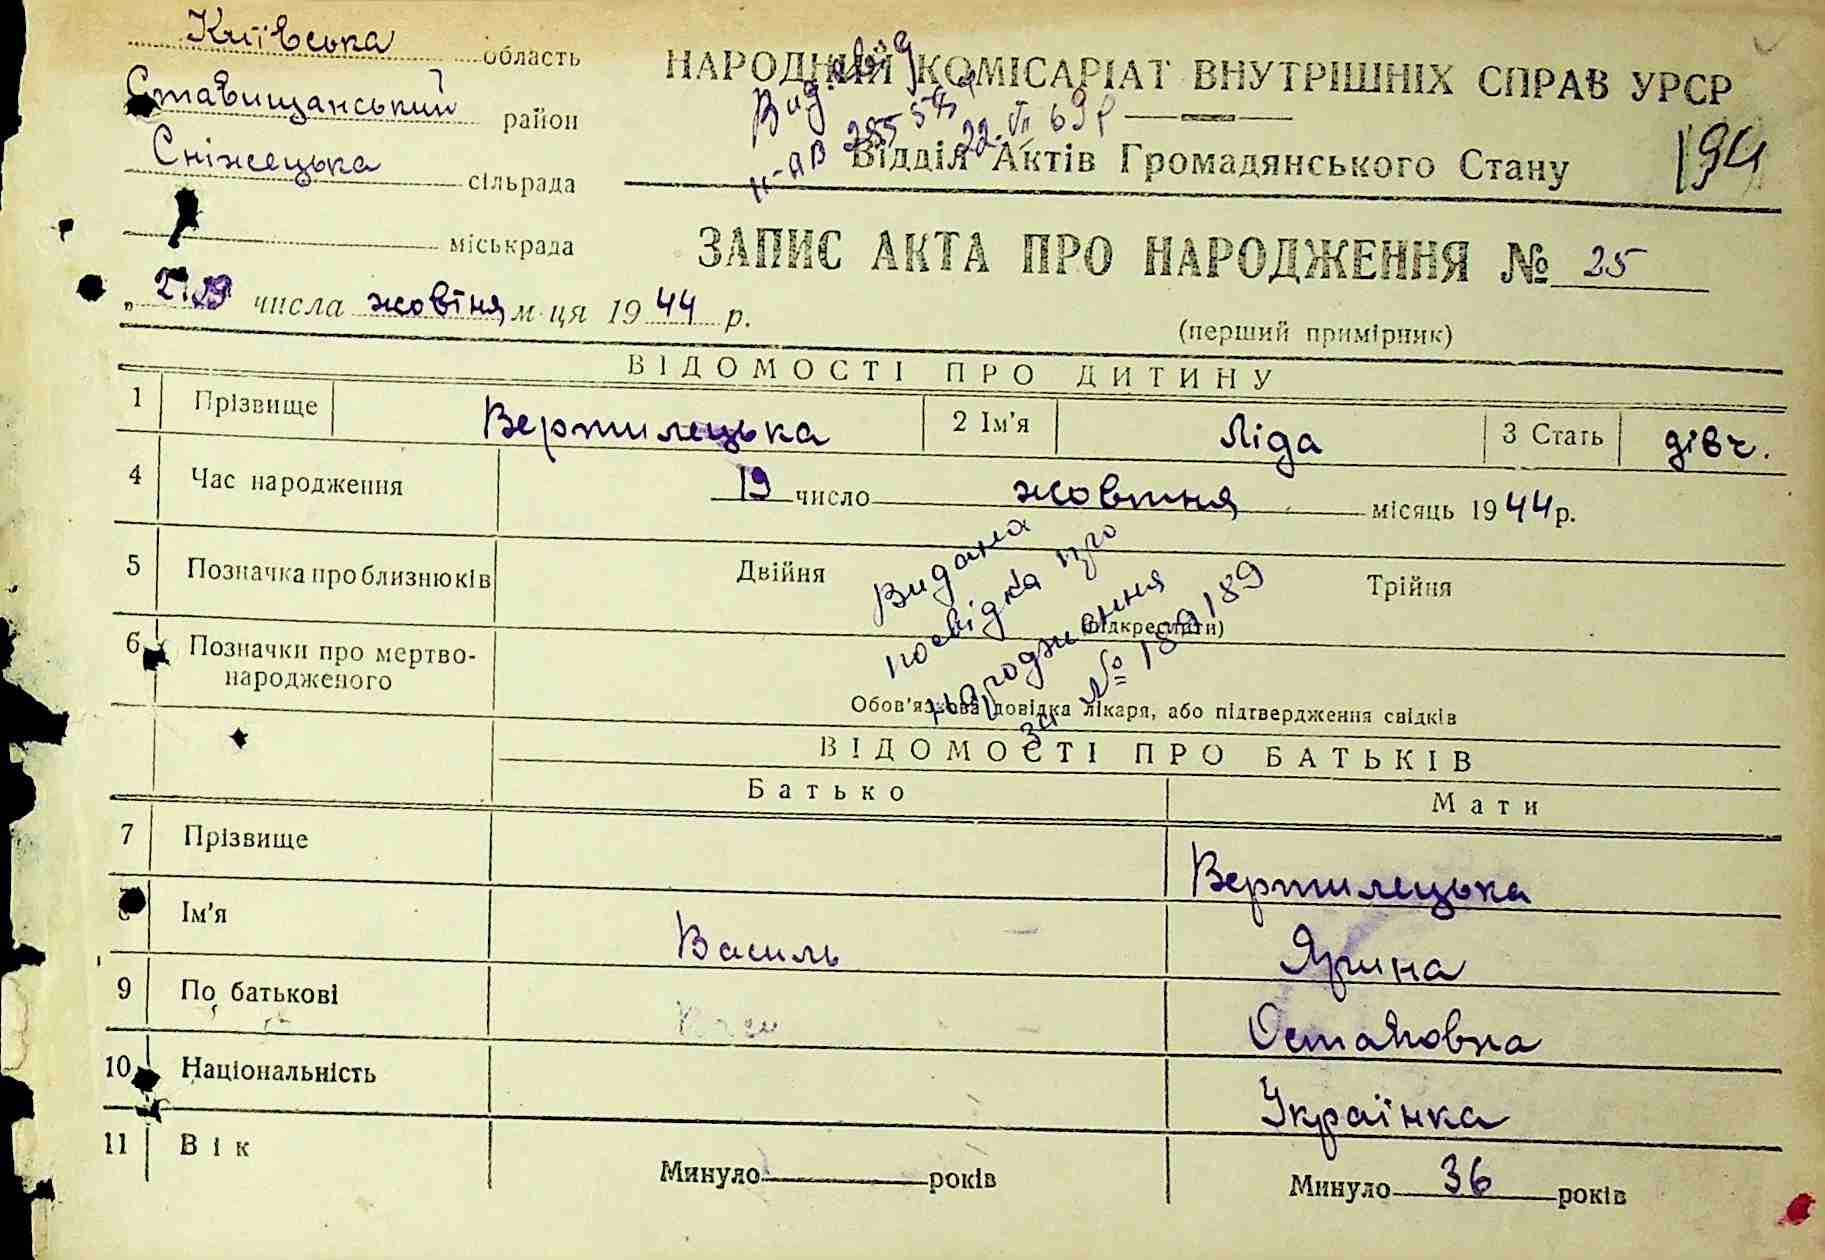 Київська область
Ставищанський район
Сніжецька сільрада
міськрада
НАРОДНИЙ КОМІСАРІАТ ВНУТРІШНІХ СПРАВ УРСР
Відділ Актів Громадянського Стану
194
ЗАПИС АКТА ПРО НАРОДЖЕННЯ № 25
числа жовтня м-ця 1944 р.
(перший примірник)
ВІДОМОСТІ ПРО ДИТИНУ
1 Прізвище Вертилецька 2 Ім'я Ліда 3 Стать дівч.
4 Час народження 19 число жовтня місяць 1944 р.
5 Позначка про близнюків Двійня Трійня
(підкреслити)
Видана
посвідка про
народження
за № 189189
6 Позначки про мертво-
народженого
Обов'язкова довідка лікаря, або підтвердження свідків
ВІДОМОСТІ ПРО БАТЬКІВ
Батько Мати
7 Прізвище Вертилецька
8 Ім'я Василь Ярина
9 По батькові Остаповна
10 Національність Українка
11 Вік Минуло років Минуло 36 років